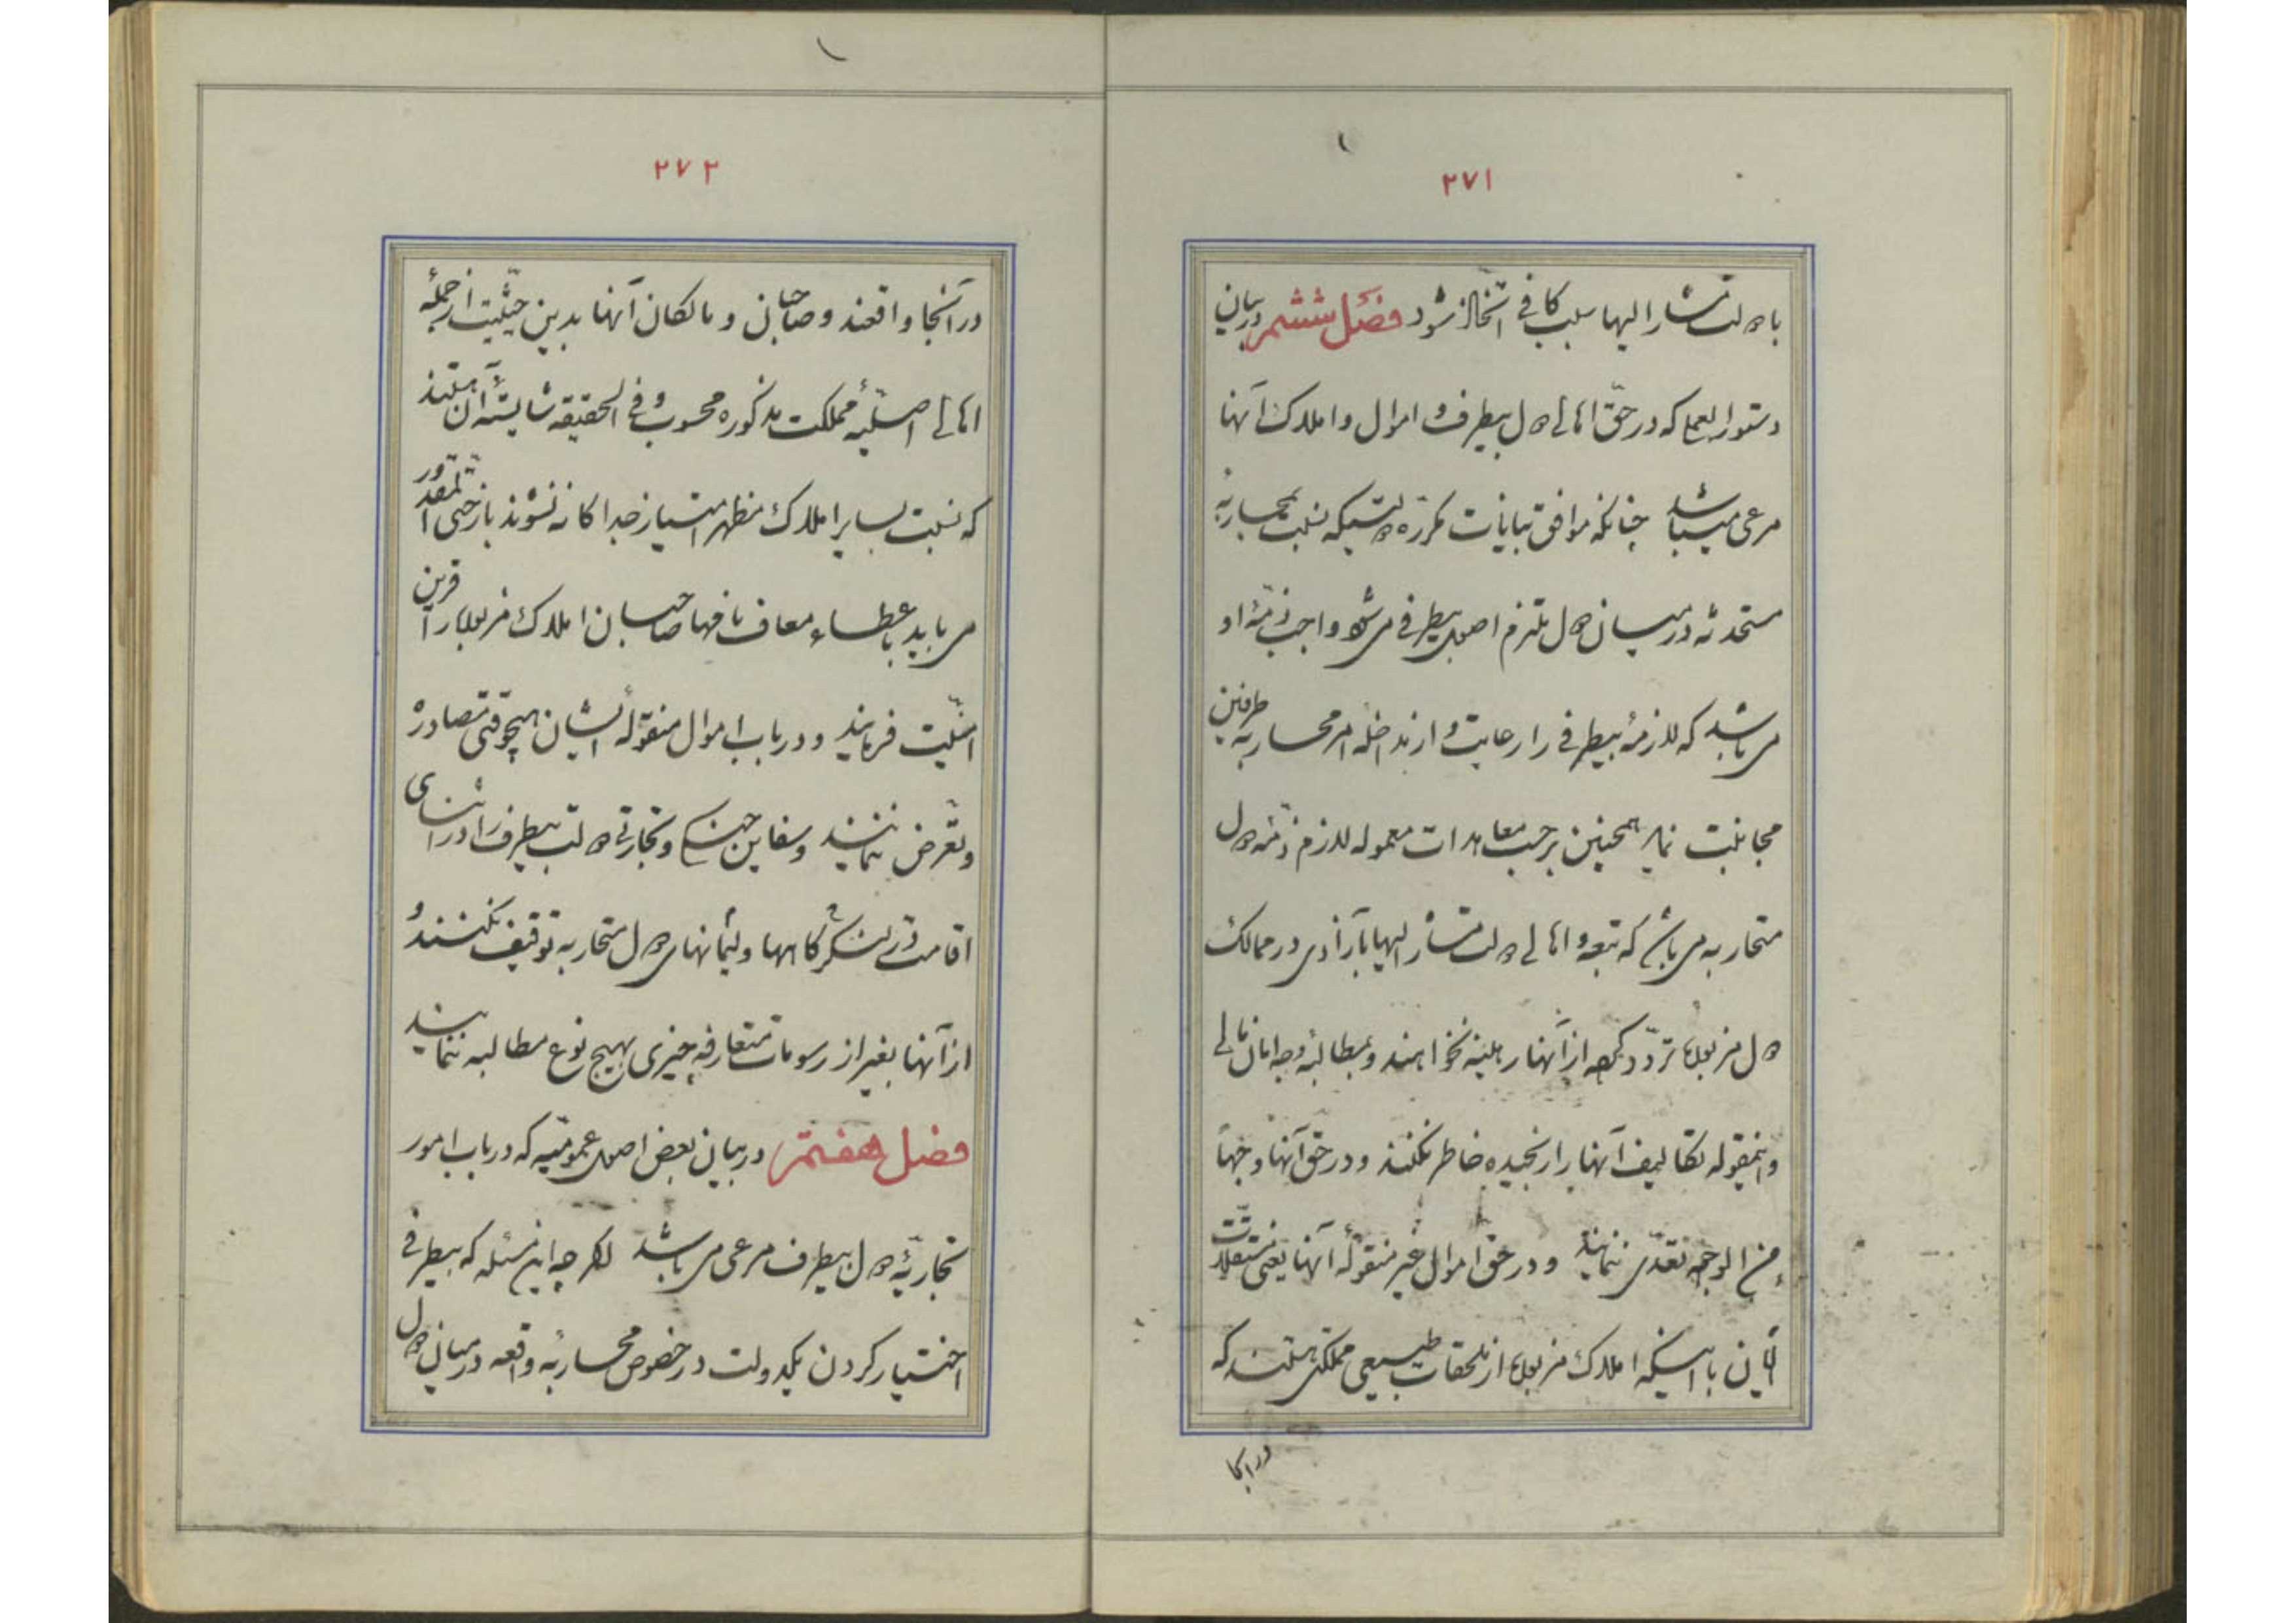 ۲۷۱
با دولت مشار الیها سلب کافی اتخاذ شود فصل ششم در بیان
دستور العملی که در حقّ اهالی دول بیطرف و اموال و املاک آنها
مرعی میباشد چنانکه موافق بیانات مکرره دولتیکه نسبت بمحاربهٔ
مستحدثه در میان دول ملتزم اصول بیطرفی می شود واجب ذمّهٔ او
می باشد که لازمهٔ بیطرفی را رعایت و از مداخله امر محاربه طرفین
مجانبت نماید همچنین بر حسب معاهدات معموله لازم ذمّه دول
متحاربه می باشد که تبعه و اهالی دولت مشار الیها بآزادی در ممالک
دول مزبوله تردّد کرده از آنها رهینه نخواهند و بمطالبهٔ وجه امان مالی
و اینمقوله تکالیف آنها را رنجیده خاطر نکنند و در حق آنها وجهاً
من الوجوه تعدّی ننمایند و در حق اموال غیر منقولهٔ آنها یعنی مستغلات
ایشان با اینکه املاک مزبوره از ملحقات طبیعی مملکتی هستند که
در انجا
۲۷۲
در آنجا واقعند و صاحبان و مالکان آنها بدین حیثیت از جملهٔ
اهالی اصلیهٔ مملکت مذکوره محسوب و فی الحقیقه شایستهٔ آن هستند
که نسبت بسایر املاک مظهر امتیاز جداگانه نشوند باز حتی المقدور
می باید باعطاء معاف نامها صاحبان املاک مزبوره را قرین
امنیّت فرمایند و در باب اموال منقولهٔ ایشان هیچوقتی مصادره
و تعرّض ننمایند و سفاین جنگی و تجارتی دولت بیطرف را در اثنای
اقامت در لنگرگاهها و لیمانهای دول متحاربه توقیف نکنند و
از آنها بغیر از رسومات متعارفه چیزی بهیچ نوع مطالبه ننمایند
فصل هفتم در بیان بعض اصول عمومیّه که در باب امور
تجاریّهٔ دول بیطرف مرعی می باشد اگر چه این مسئله که بیطرفی
اختیار کردن یکدولت در خصوص محاربهٔ واقعه در میان دول